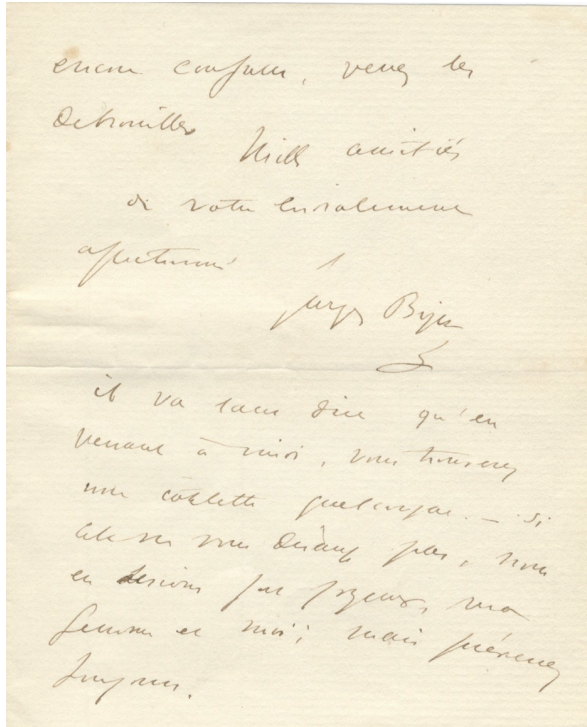 encore confuses, venez les
débrouiller.
Mille amitiés
de votre
affectionné
Georges Bizet
il va sans dire qu'en
venant à midi, vous trouverez
une côtelette quelconque. — Si
cela ne vous dérange pas, nous
en serions fort joyeux, ma
femme et moi; mais prévenez